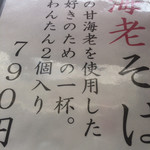 海老そば
の甘海老を使用した
好きのための一杯。
わんたん2個入り
790円